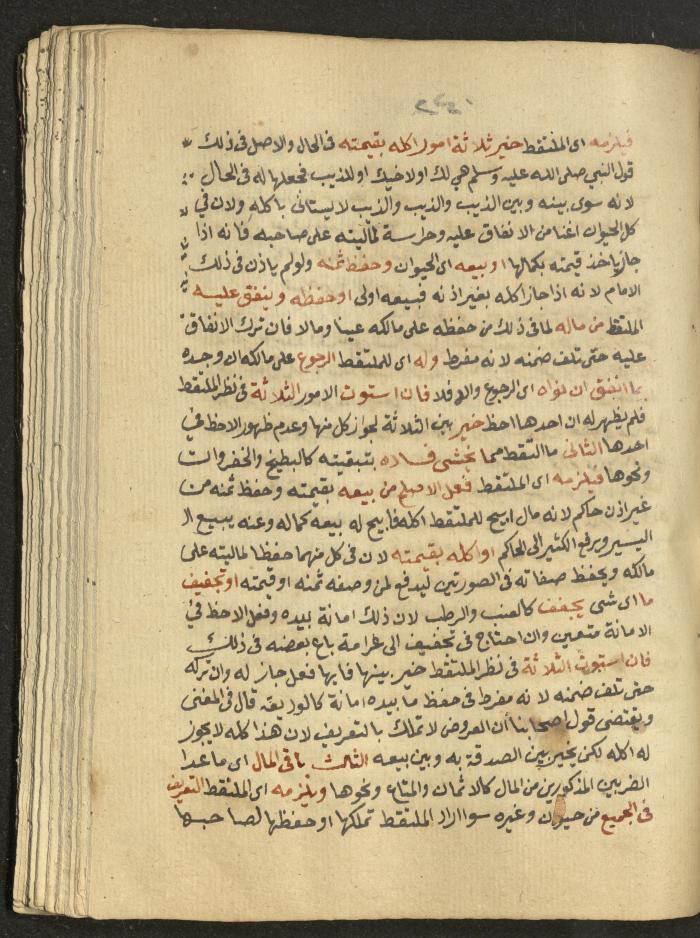 فيلزمه اى الملتقط خير ثلاثة امور اكله بقيمته فى الحال والاصل فى ذلك
قول النبي صلى الله عليه وسلم هي لك او لاخيك او للذيب فجعلها له فى الحال
لانه سوى بينه وبين الذيب والذيب لا يستانى باكله ولان في
كل الحيوان اغنا من الانفاق عليه وحراسة لماليته على صاحبه فانه اذا
جا ياخذ قيمته بكمالها او بيعه اى الحيوان وحفظ ثمنه ولو لم ياذن فى ذلك
الامام لانه اذا جاز اكله بغير اذنه فبيعه اولى او حفظه وينفق عليه
الملتقط من ماله لما فى ذلك من حفظه على مالكه عينا ومالا فان ترك الانفاق
عليه حتى تلف ضمنه لانه مفرط وله اى للملتقط الرجوع على مالكه ان وجده
بما انفق ان نواه اى الرجوع والا فلا فان استوت الامور الثلاثة فى نظر الملتقط
فلم يظهر له ان احدها احظ خير بين الثلاثة لجواز كل منها وعدم ظهور الاحظ في
احدها الثانى ما التقط مما يخشى فساده بتبقيته كالبطيخ والخضروات
ونحوها فيلزمه اى الملتقط فعل الاصلح من بيعه بقيمته وحفظ ثمنه من
غير اذن حاكم لانه مال ابيح للملتقط اكله فابيح له بيعه كماله وعنه يبيع
اليسير ويرفع الكثير الى الحاكم او اكله بقيمته لان فى كل منهما حفظا لماليته على
مالكه ويحفظ صفاته فى الصورتين ليدفع لمن وصفه ثمنه او قيمته او تجفيف
ما اى شى يجفف كالعنب والرطب لان ذلك امانة بيده وفعل الاحظ في
الامانة متعين وان احتاج فى تجفيف الى غرامة باع بعضه فى ذلك
فان استوت الثلاثة فى نظر الملتقط خير بينها فايها فعل جاز له وان تركه
حتى تلف ضمنه لانه مفرط فى حفظ ما بيده امانة كالوديعة قال فى المغنى
ويقتضى قول اصحابنا أن العروض لا تملك بالتعريف لان هذا كله لا يجوز
له اكله لكن يخير بين الصدقة به وبين بيعه الثالث باقى المال اى ما عدا
الضربين المذكورين من المال كالاثمان والمتاع ونحوها ويلزمه اى الملتقط التعريف
فى الجميع من حيوان وغيره سوا اراد الملتقط تملكها او حفظها لصاحبها